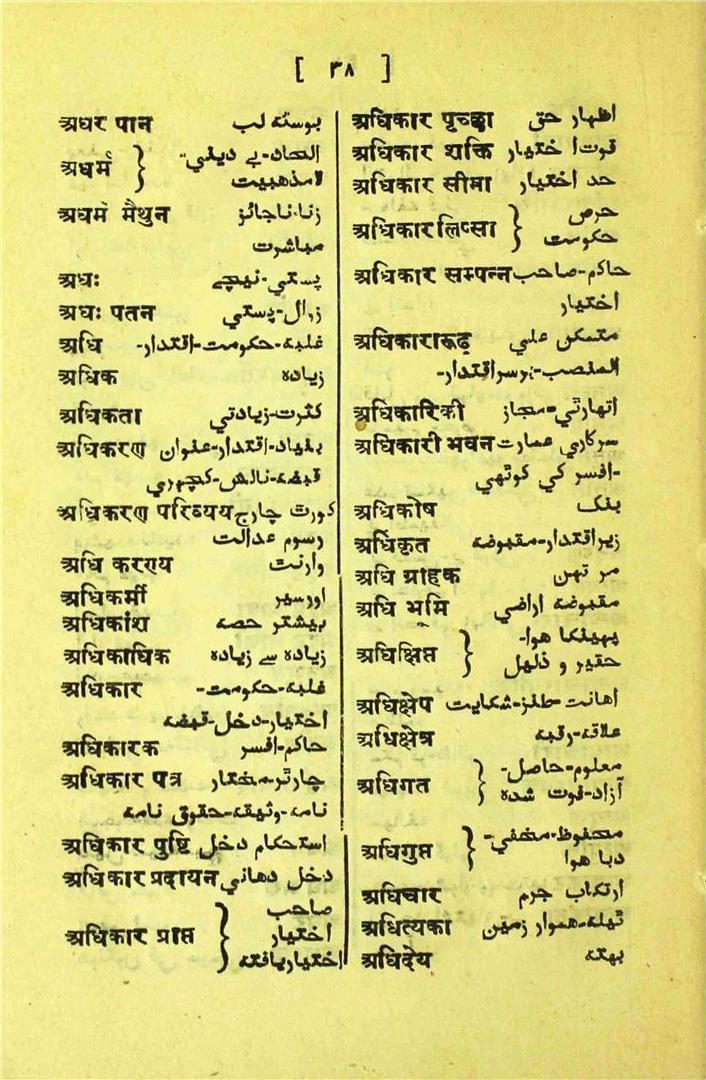 [ ۳۸ ]
अधर पान بوسئہ لب
अधर्म } الحاد-بے دینی-
لامذہبیت
अधर्म मैथुन زنا-ناجائز
مباشرت
अधः پستی-نیچے
अधः पतन زوال-پستی
अधि غلبہ-حکومت-اقتدار-
अधिक زیادہ
अधिकता کثرت-زیادتی
अधिकरण بنیاد-اقتدار-عنوان
قبضہ-نالش-کچہری
अधिकरण परिव्यय کورٹ چارج
رسوم عدالت
अधि करण्य وارنٹ
अधिकर्मी اورسیر
अधिकांश بیشتر حصہ
अधिकाधिक زیادہ سے زیادہ
अधिकार غلبہ-حکومت-
اختیار-دخل-قبضہ
अधिकारक حاکم-افسر
अधिकार पत्र چارٹر-مختار
نامہ-وثیقہ-حقوق نامہ
अधिकार पुष्टि استحکام دخل
अधिकार प्रदायन دخل دہانی
अधिकार प्राप्त } صاحب
اختیار
اختیاریافتہ
अधिकार पृच्छा اظہار حق
अधिकार शक्ति قوت اختیار
अधिकार सीमा حد اختیار
अधिकार लिप्सा } حرص
حکومت
अधिकार सम्पन्न حاکم-صاحب
اختیار
अधिकारारूढ़ متمکن علی
المنصب-برسراقتدار-
अधिकारिकी اتھارٹی-مجاز
अधिकारी भवन سرکاری عمارت
-افسر کی کوٹھی
अधिकोष بنک
अधिकृत زیراقتدار-مقبوضہ
अधि ग्राहक مر تہن
अधि भूमि مقبوضہ اراضی
अधिक्षिप्त } پھینکا ہوا-
حقیر و ذلیل
अधिक्षेप اہانت-طنز-شکایت
अधिक्षेत्र علاقہ-رقبہ
अधिगत } معلوم-حاصل-
آزاد-فوت شدہ
अधिगुप्त } محفوظ-مخفی-
دبا ہوا
अधिचार ارتکاب جرم
अधित्यका ٹیلہ-ہموار زمین
अधिदेय بھتہ